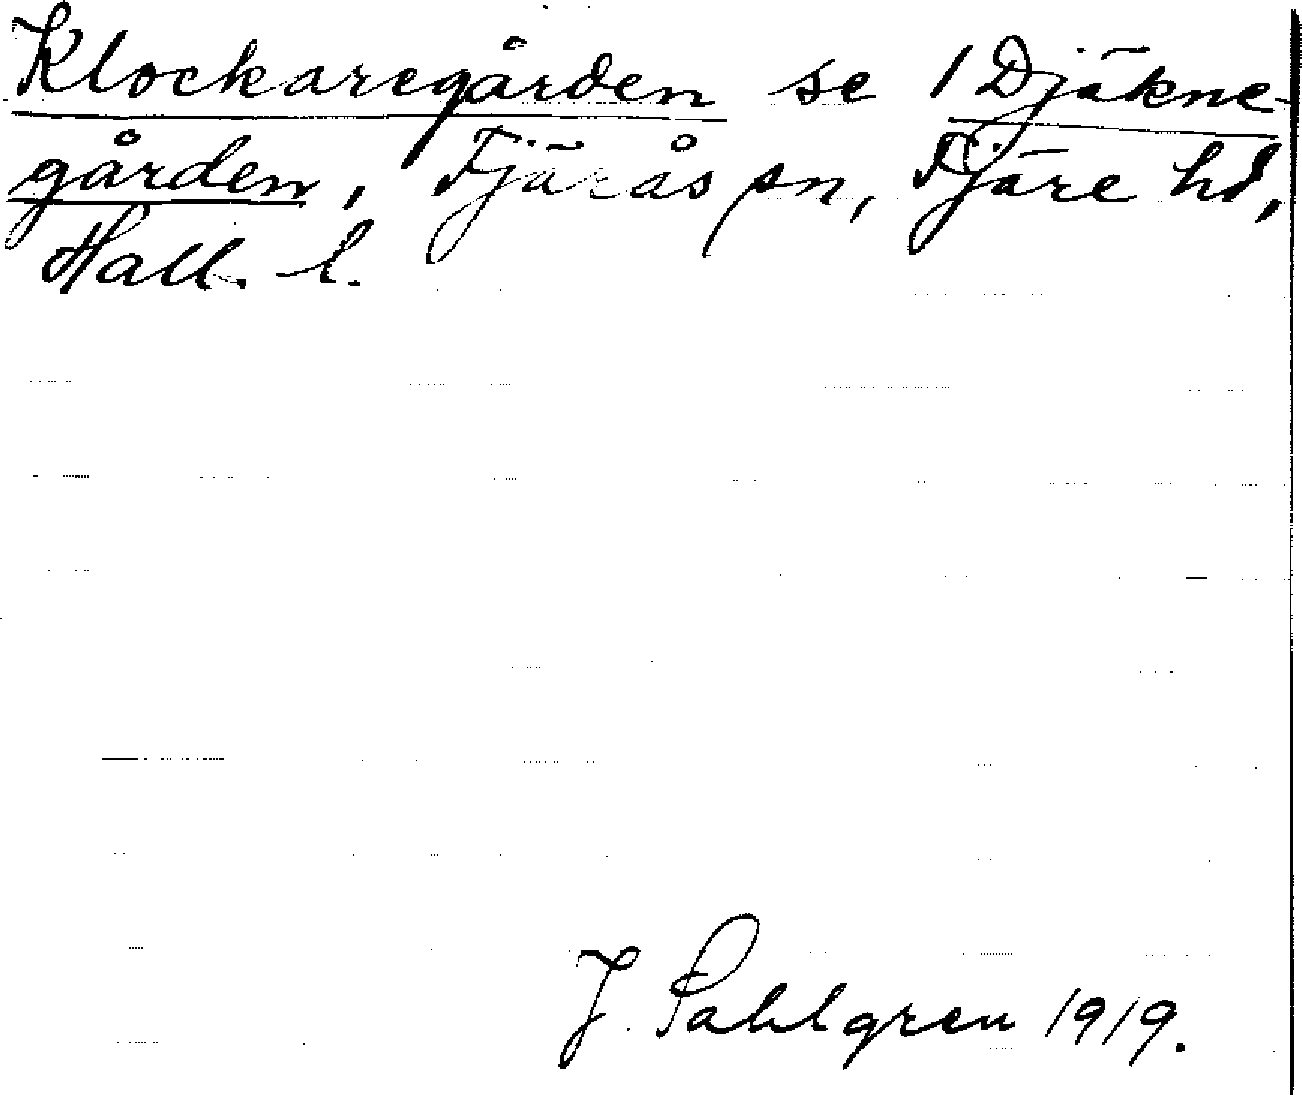 Klockaregården se 1 Djäkne-
gården, Fjärås sn, Fjäre hd,
Hall. l.
J. Sahlgren 1919.